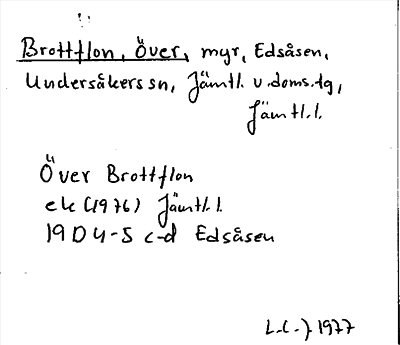 Brottflon, Över, myr, Edsåsen,
Undersåkers sn, Jämtl. v. doms. tg,
Jämtl. l.
Över Brottflon
ek (1976) Jämtl. l.
19D 4-5 c-d Edsåsen
1977